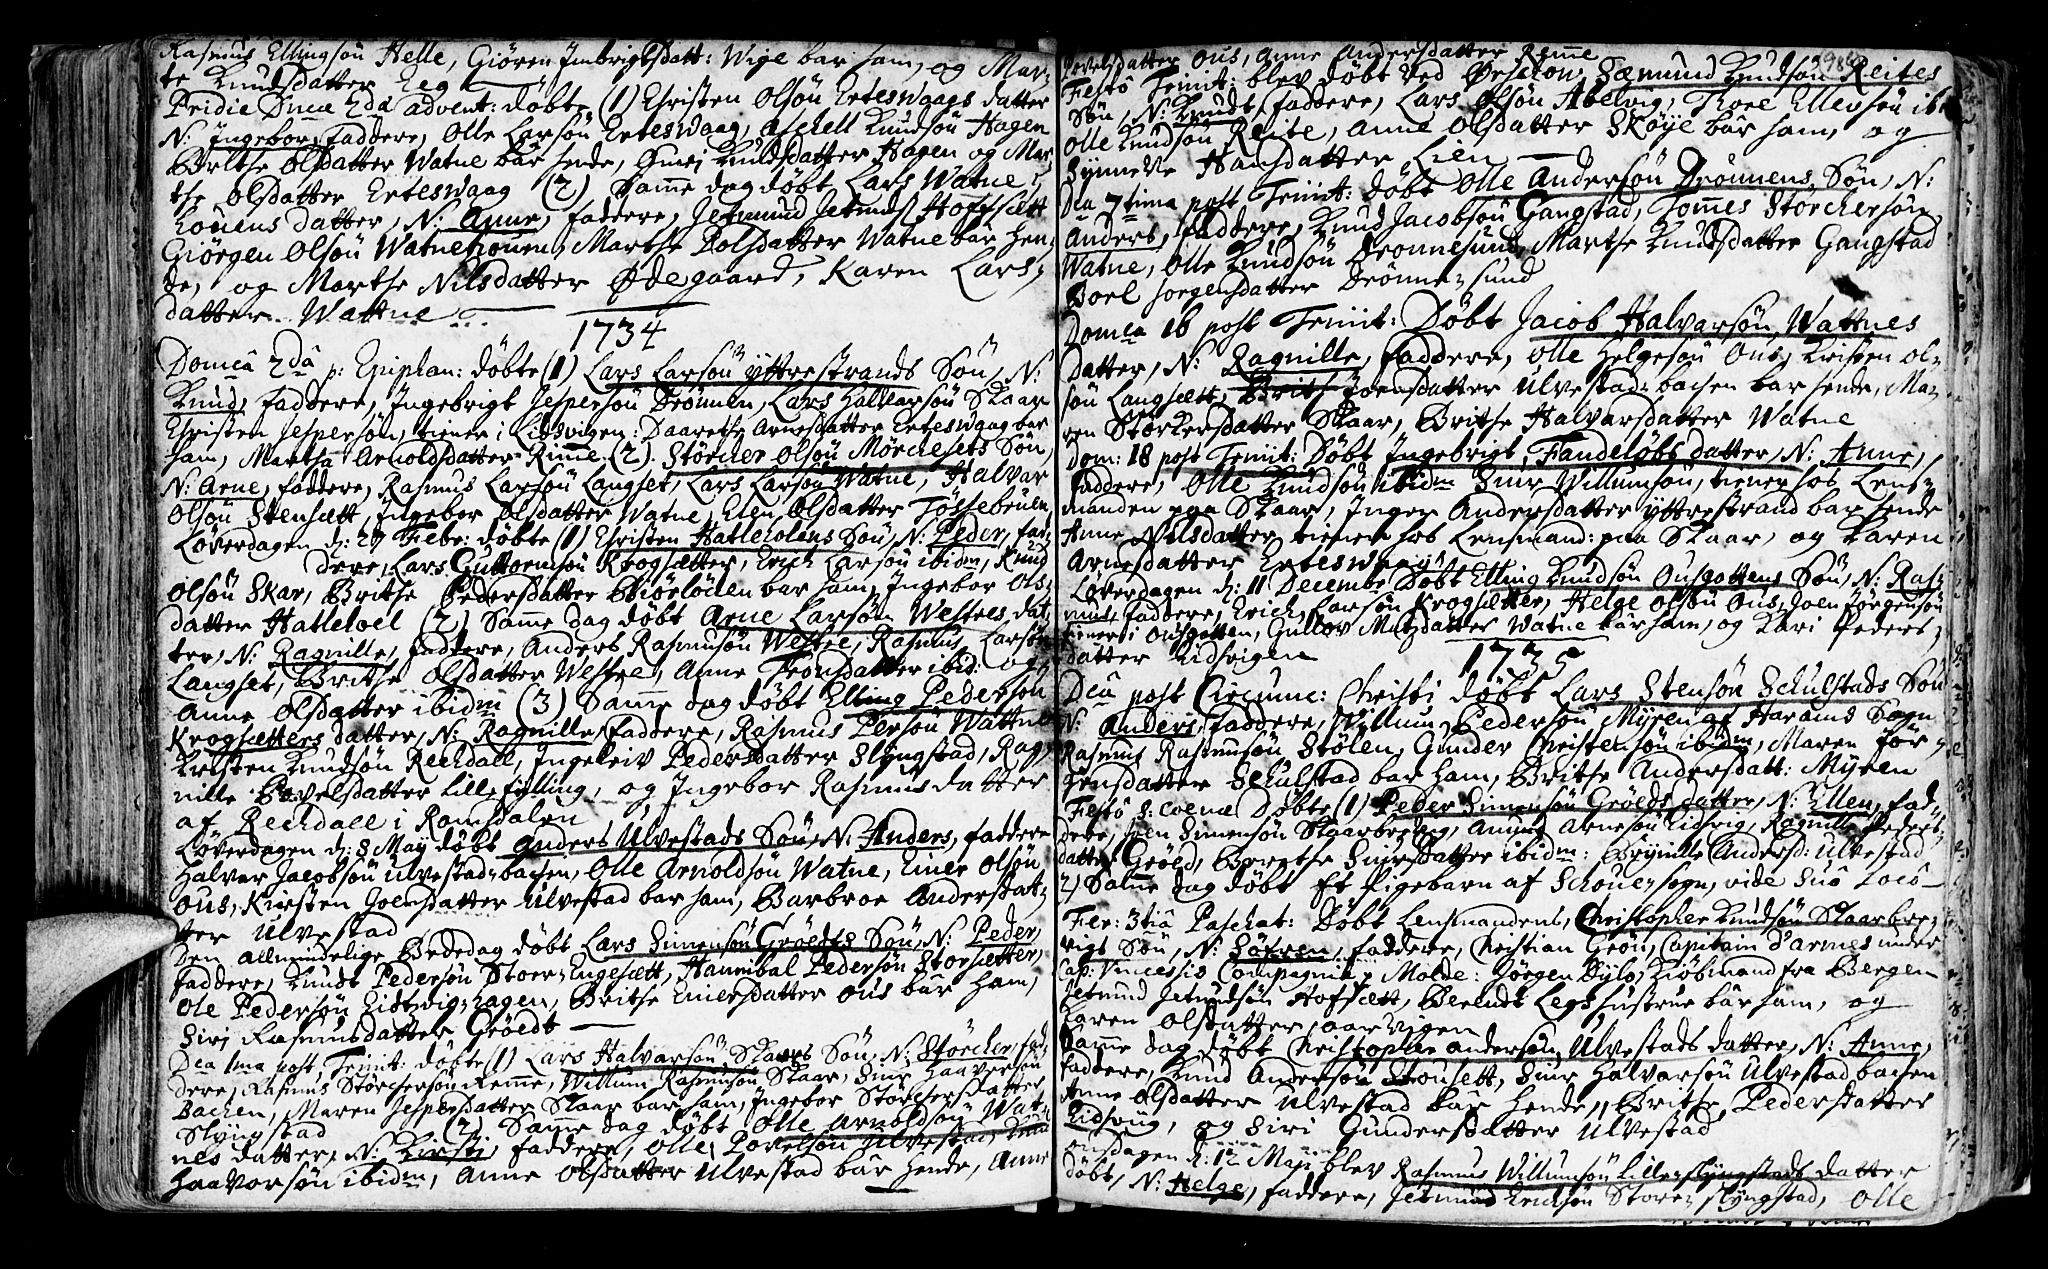 Rasmus Ellingsøn Helle, Giøren Jmbrigtsdatt: Wige bar ham, og Mar-
te Knudsdatter Eeg
Pridie Dnicæ 2da advent: døbte (1) Christen Olsøn Erteswaags datter
N: Jngebor, faddere, Olle Larsøn Erteswaag, Aschell Knudsøn Hagen
Brithe Olsdatter Watne bar hende, Knudsdatter Hagen og Mar-
the Olsdatter Erteswaag (2) Samme dag døbt Lars Watne-
houens datter, N: Anne, faddere, Jetmund Jetmds: Hoffsett
Giørgen Olsøn Watnehouen, Marthe Polsdatter Watne bar hen-
de, og Marthe Nilsdatter Ødegaard, Karen Lars-
datter Wattne
1734
Domca 2dâ p: Epiphan: døbte (1) Lars Larsøn Yttrestrands Søn, N:
Knud, faddere, Jngebrigt Jespersøn Drønnen, Lars Halvarsøn Skaar
Christen Jespersøn, tiener i Lidsvigen: Daarethe Arnesdatter Erteswaag bar
ham, Martha Arnoldsdatter Rime. (2). Størcher Olsøn Mørchesets Søn,
N: Arne, faddere, Rasmus Larsøn Langset, Lars Larsøn Watne, Halvar
Olsøn Stensett, Jngebor Olsdatter Watne, Elen Olsdatter Tøssebrüen
Løverdagen d: 27 Febr: døbte (1) Christen Hatleholens Søn, N: Peder, fad-
dere, Lars Guttormsøn Krogsætter, Erich Larsøn ibidm, Knud
Olsøn Skar, Brithe Pedersdatter Biørløden bar ham, Jngebor Ols-
datter Hatlehoel (2) Samme dag døbt Arne Larsøn Westres dat-
ter, N: Ragnille, faddere, Anders Rasmusøn Westre, Rasmus Larsøn
Langset, Brithe Olsdatter Westre, Anne Tronsdatter ibid: og
Anne Olsdatter ibidm (3) Samme dag døbt Elling Pedersøn
Krogsetters datter, N: Ragnille, faddere, Rasmus Persøn Wattne
Kristen Knudsøn Rechdall, Jngeleiv Pedersdatter Slyngstad, Rag-
nille Povelsdatter Lillefylling, og Jngebor Rasmusdatter
af Rechdall i Romsdalen
Løverdagen d: 8 May døbt Anders Ulvestads Søn, N: Anders, faddere
Halvar Jacobsøn Ulvestad-bachen, Olle Arnoldsøn Watne, Einer Olsøn
Ous, Kirsten Joensdatter Ulvestad bar ham, Barbroe Andersdat-
ter Ulvestad
Den allmindelige Bededag døbt Lars Simensøn Grøedts Søn, N: Peder,
faddere, Knudt Pedersøn Stoer-Engesett, Hannibal Pedersøn Storsætter,
Ole Pedersøn Eistvig-hagen, Brithe Einersdatter Ous bar ham,
Siri Rasmusdatter Grøedt
Dca 1ma post Trinit: døbte (1) Lars Halvarsøn Skaars Søn, N: Størcher, fad-
dere, Rasmus Størchersøn Remme, Willum Rasmusøn Skaar, Siur Haaversøn
Bachen, Maren Jespersdatter Skaar bar ham, Jngebor Størchersdatter
Slyngstad (2) Samme dag døbt Olle Arnoldsøn Wat-
nes datter, N: Kirsti, faddere, Olle Povelsøn Ulvestad, Knud
Haavorsøn ibidm, Anne Olsdatter Ulvestad bar hende, Anne
Povelsdatter Ous, Anne Andersdatter Remme
Festô Trinit: blev døbt ved Ørschou, Sæmund Knudsøn Reites
Søn, N: Knudt, faddere, Lars Olsøn Abelvig, Thore Ellevsøn ib
Olle Knudsøn Reite, Anne Olsdatter Skøye bar ham, og
Synneve Hansdatter Lien
Dca 7tima post Trinit: døbt Olle Andersøn Drønnens Søn, N:
Anders, faddere, Knud Jacobsøn Gangstad, Tommes Størchersøn
Watne, Olle Knudsøn Dronnesund, Marthe Knudsdatter Gangstad
Boel Jorgensdatter Drønne-sund
Domca 16 post Trinit: Døbt Jacob Halvarsøn Wattnes
datter, N: Ragnille, faddere, Olle Helgesøn Ous, Kristen Ol-
søn Langsett, Brithe Joensdatter Ulvestad-bachen bar hende, Ma-
ren Størkersdatter Skaar, Brithe Halvarsdatter Watne
Dom: 18 post Trinit: Døbt Jngebrigt Fandeløbs datter, N: Anne,
faddere, Olle Knudsøn ibidm Siur Willumsøn, tiener hos Lens-
manden paa Skaar, Jnger Andersdatter Yttrestrand bar hende
Anne Nilsdatter, tiener hos Lensmand: paa Skaar, og Karen
Arnesdatter Erteswaag
Løverdagen d: 11 Decembr Døbt Elling Knudsøn Ousgottens Søn, N: Ras-
mus, faddere, Erich Larsøn Krogsætter, Helge Olsøn Ous, Joen Jørgensøn
tiener i Ousgotten, Gullov Matzdatter Watne bar ham, og Kari Peders-
datter Lidsvigen
1735
Dca post Circumc: Christi døbt Lars Stensøn Schulstads Søn
N: Anders, faddere, Willum Pedersøn Myren af Harams Sogn
Rasmus Rasmusøn Stølen, Gunder Christensøn ibidm, Maren Jør-
gensdatter Schulstad bar ham, Brithe Andersdatt: Myren
Festô S: Coenæ Døbte (1) Peder Simensøn Grøeds datter, N: Ellen, fad-
dere, Joen Simensøn Skaarbrevig, Amund Arnesøn Lidsvig, Ragnille Peders-
datter Grøed, Berethe Siursdatter ibidm: Brynille Andersd: Ulvestad
2) Samme dag døbt Et Pigebarn af Schouer-sogn, vide Suô Locô
Fer: 3tiâ Paschat: Døbt Lensmandens, Christopher Knudsøn Skaarbre-
vigs Søn, N: Søfren, faddere, Christian Grøn, Capitain d'armes under
Cap: Vincessis Compagnia Molde: Jørgen Dyls, Kiøbmand fra Bergen
Jetmund Jetmdsøn Hofsett, Berendt Legs Hustrue bar ham, og
Karen Olsdatter Aarvigen
Samme dag døbt Christopher Andersøn Ulvestads datter, N: Anne,
faddere, Knud Andersøn Stousett, Siur Halvarsøn Ulvestadbachen
Anne Olsdatter Ulvestad bar hende, Brithe Pedersdatter
Lidsvig, og Siri Gundersdatter Ulvestad
onsdagen d: 12 Maji blev Rasmus Willumsøn Lille-slyngstads datter
døbt, N: Helge, faddere, Jetmund Erichsøn Store-slyngstad, Olle